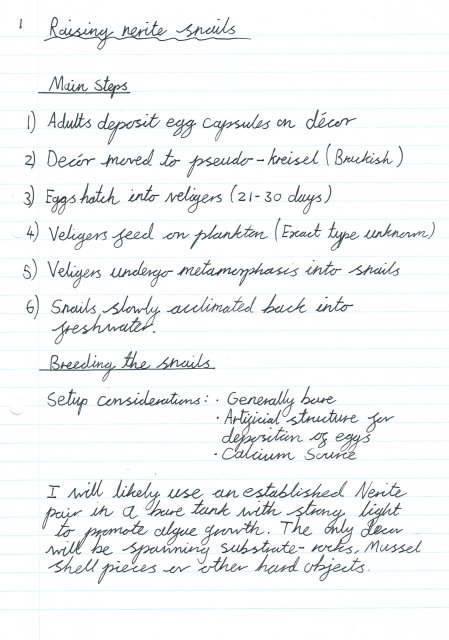 1 Raising nerite snails
Main Steps
1) Adults deposit egg capsules on décor
2) Decór moved to pseudo-kreisel (Brackish)
3) Eggs hatch into veligers (21-30 days)
4) Veligers feed on plankton (Exact type unknown)
5) Veligers undergo metamorphasis into snails
6) Snails slowly acclimated back into
freshwater.
Breeding the snails
Setup considerations: · Generally bare
· Artificial structure for
deposition of eggs
· Calcium Source
I will likely use an established Nerite
pair in a bare tank with strong light
to promote algae growth. The only decor
will be spawning substrate - rocks, Mussel
shell pieces or other hard objects.